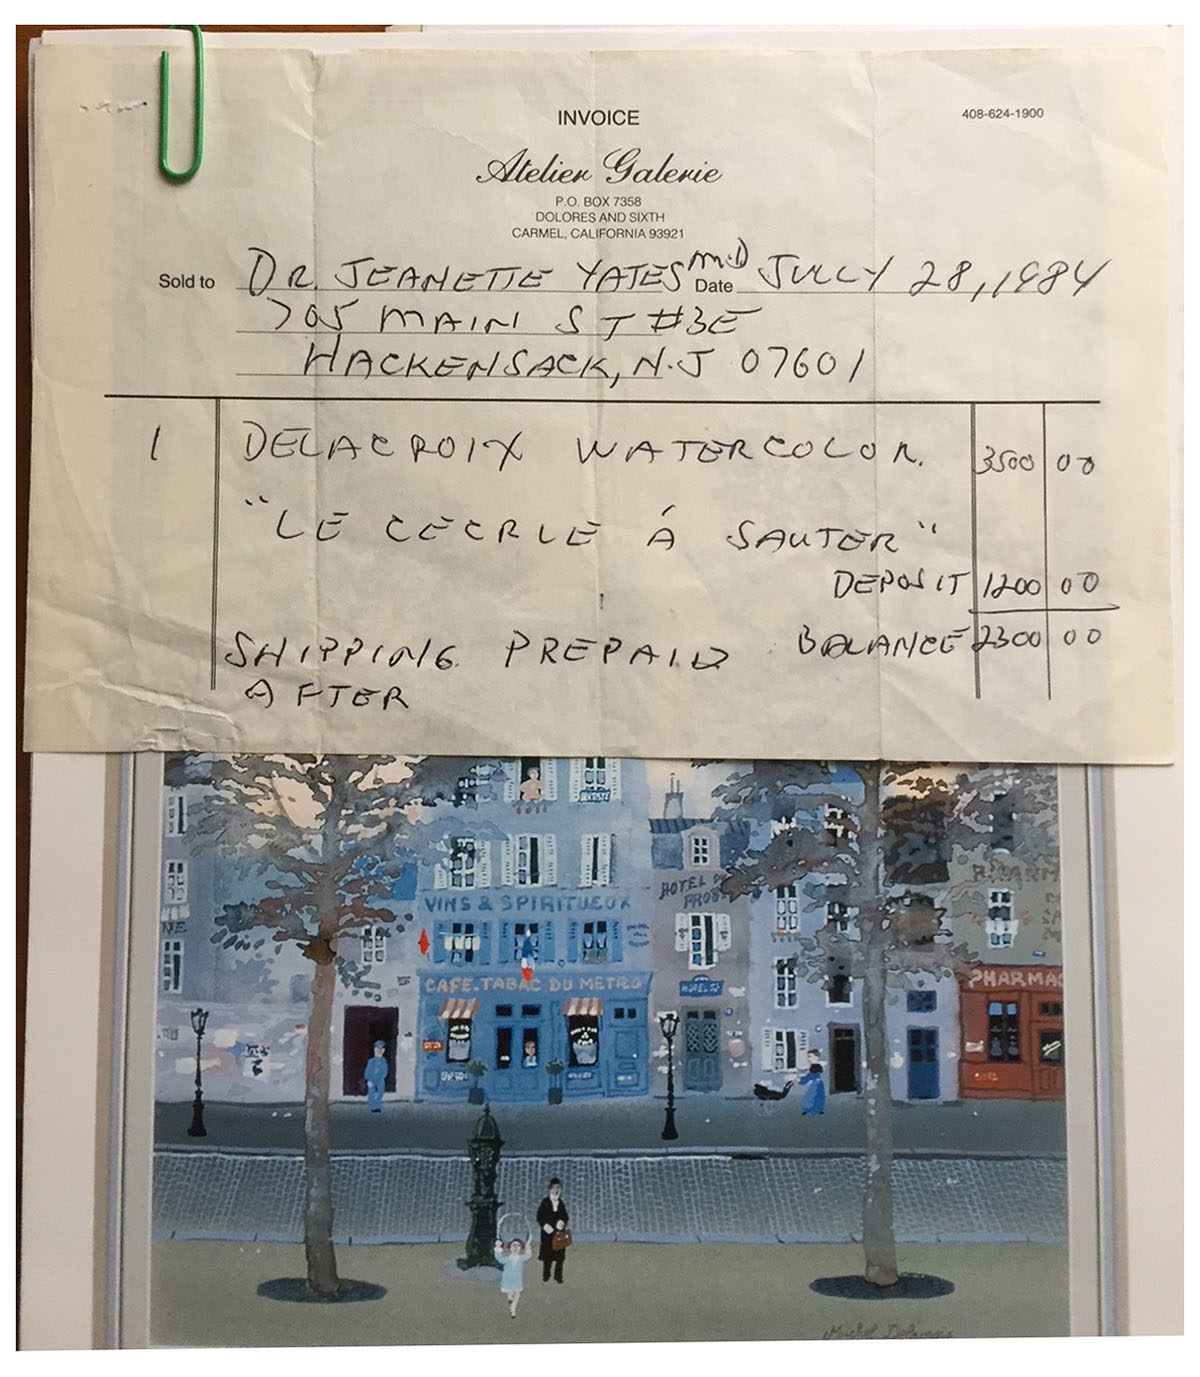 INVOICE
408-624-1900
Atelier Galerie
P.O. BOX 7358
DOLORES AND SIXTH
CARMEL, CALIFORNIA 93921
Sold to DR. JEANETTE YATES MD Date JULLY 28, 1984
705 MAIN ST #3E
HACKENSACK, N.J 07601
1 DELACROIX WATERCOLOR. 3500 00
"LE CECRLE Á SAUTER"
DEPOSIT 1200 00
SHIPPING PREPAID BALANCE 2300 00
AFTER
DENTISTE
VINS & SPIRITUEUX
HOTEL
CAFE.TABAC DU METRO
HOTEL
PHARMAC